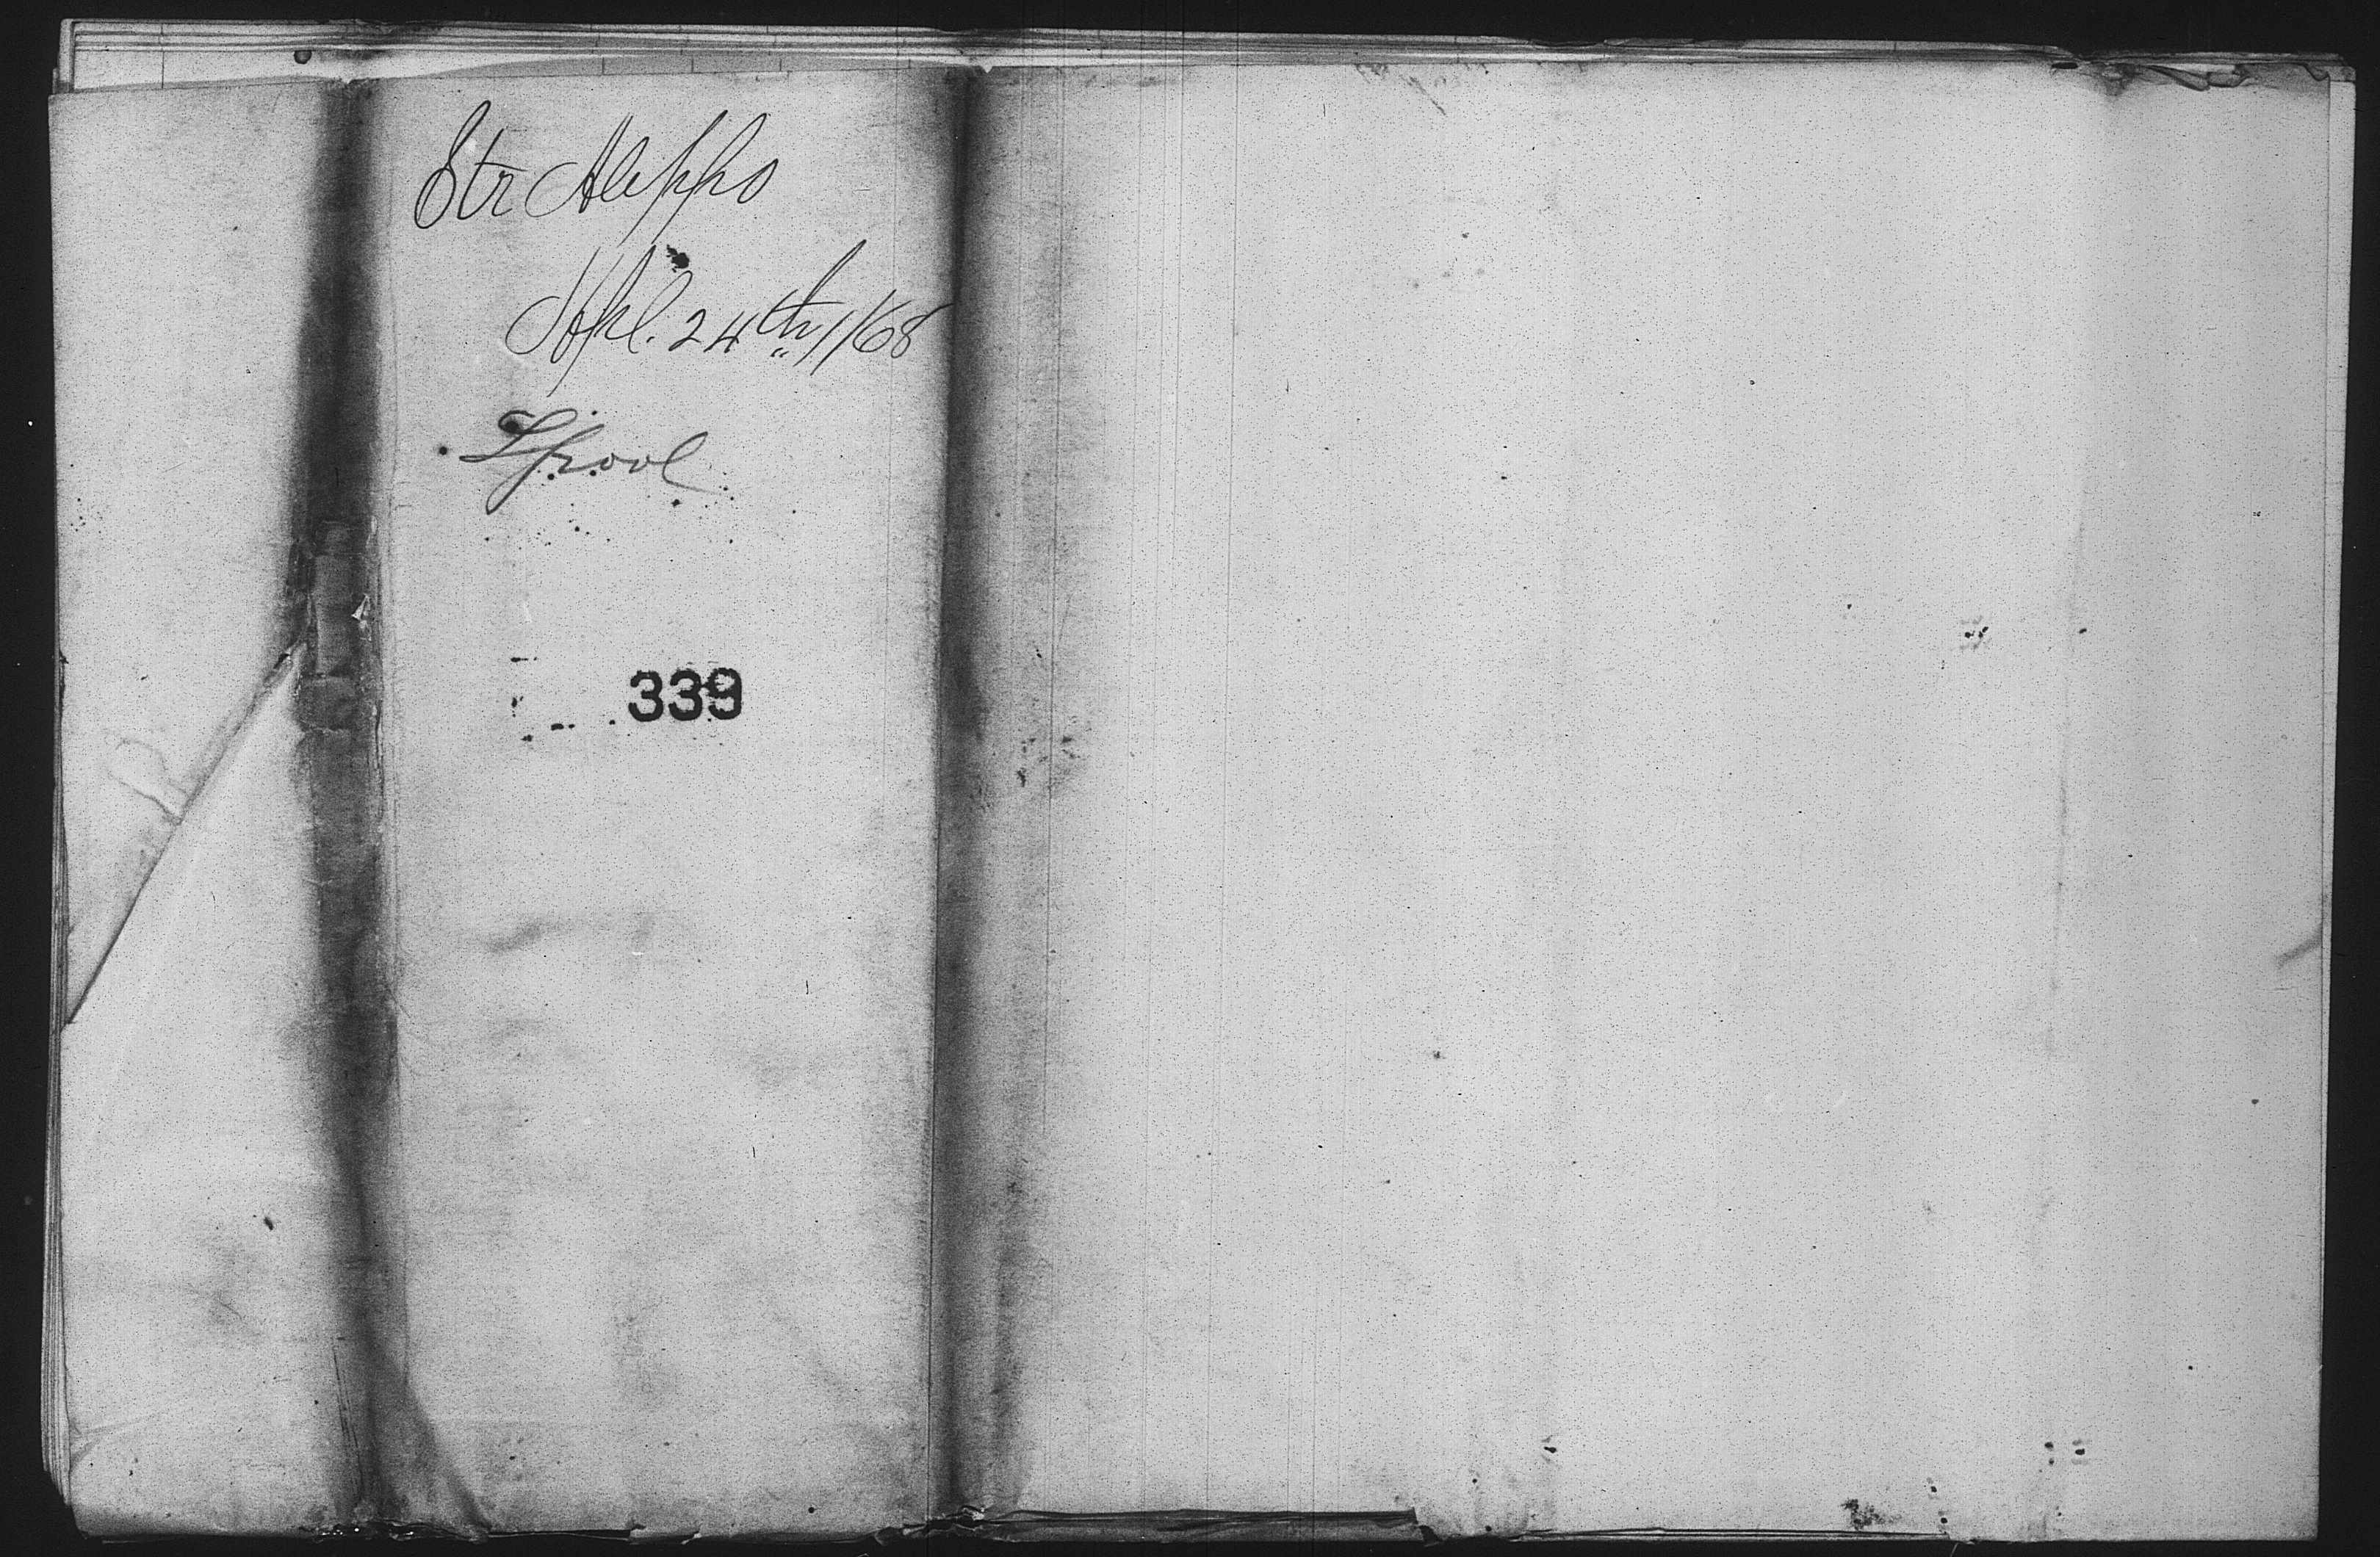 Str Aleppo
Apl. 24th /68
Lpool
339